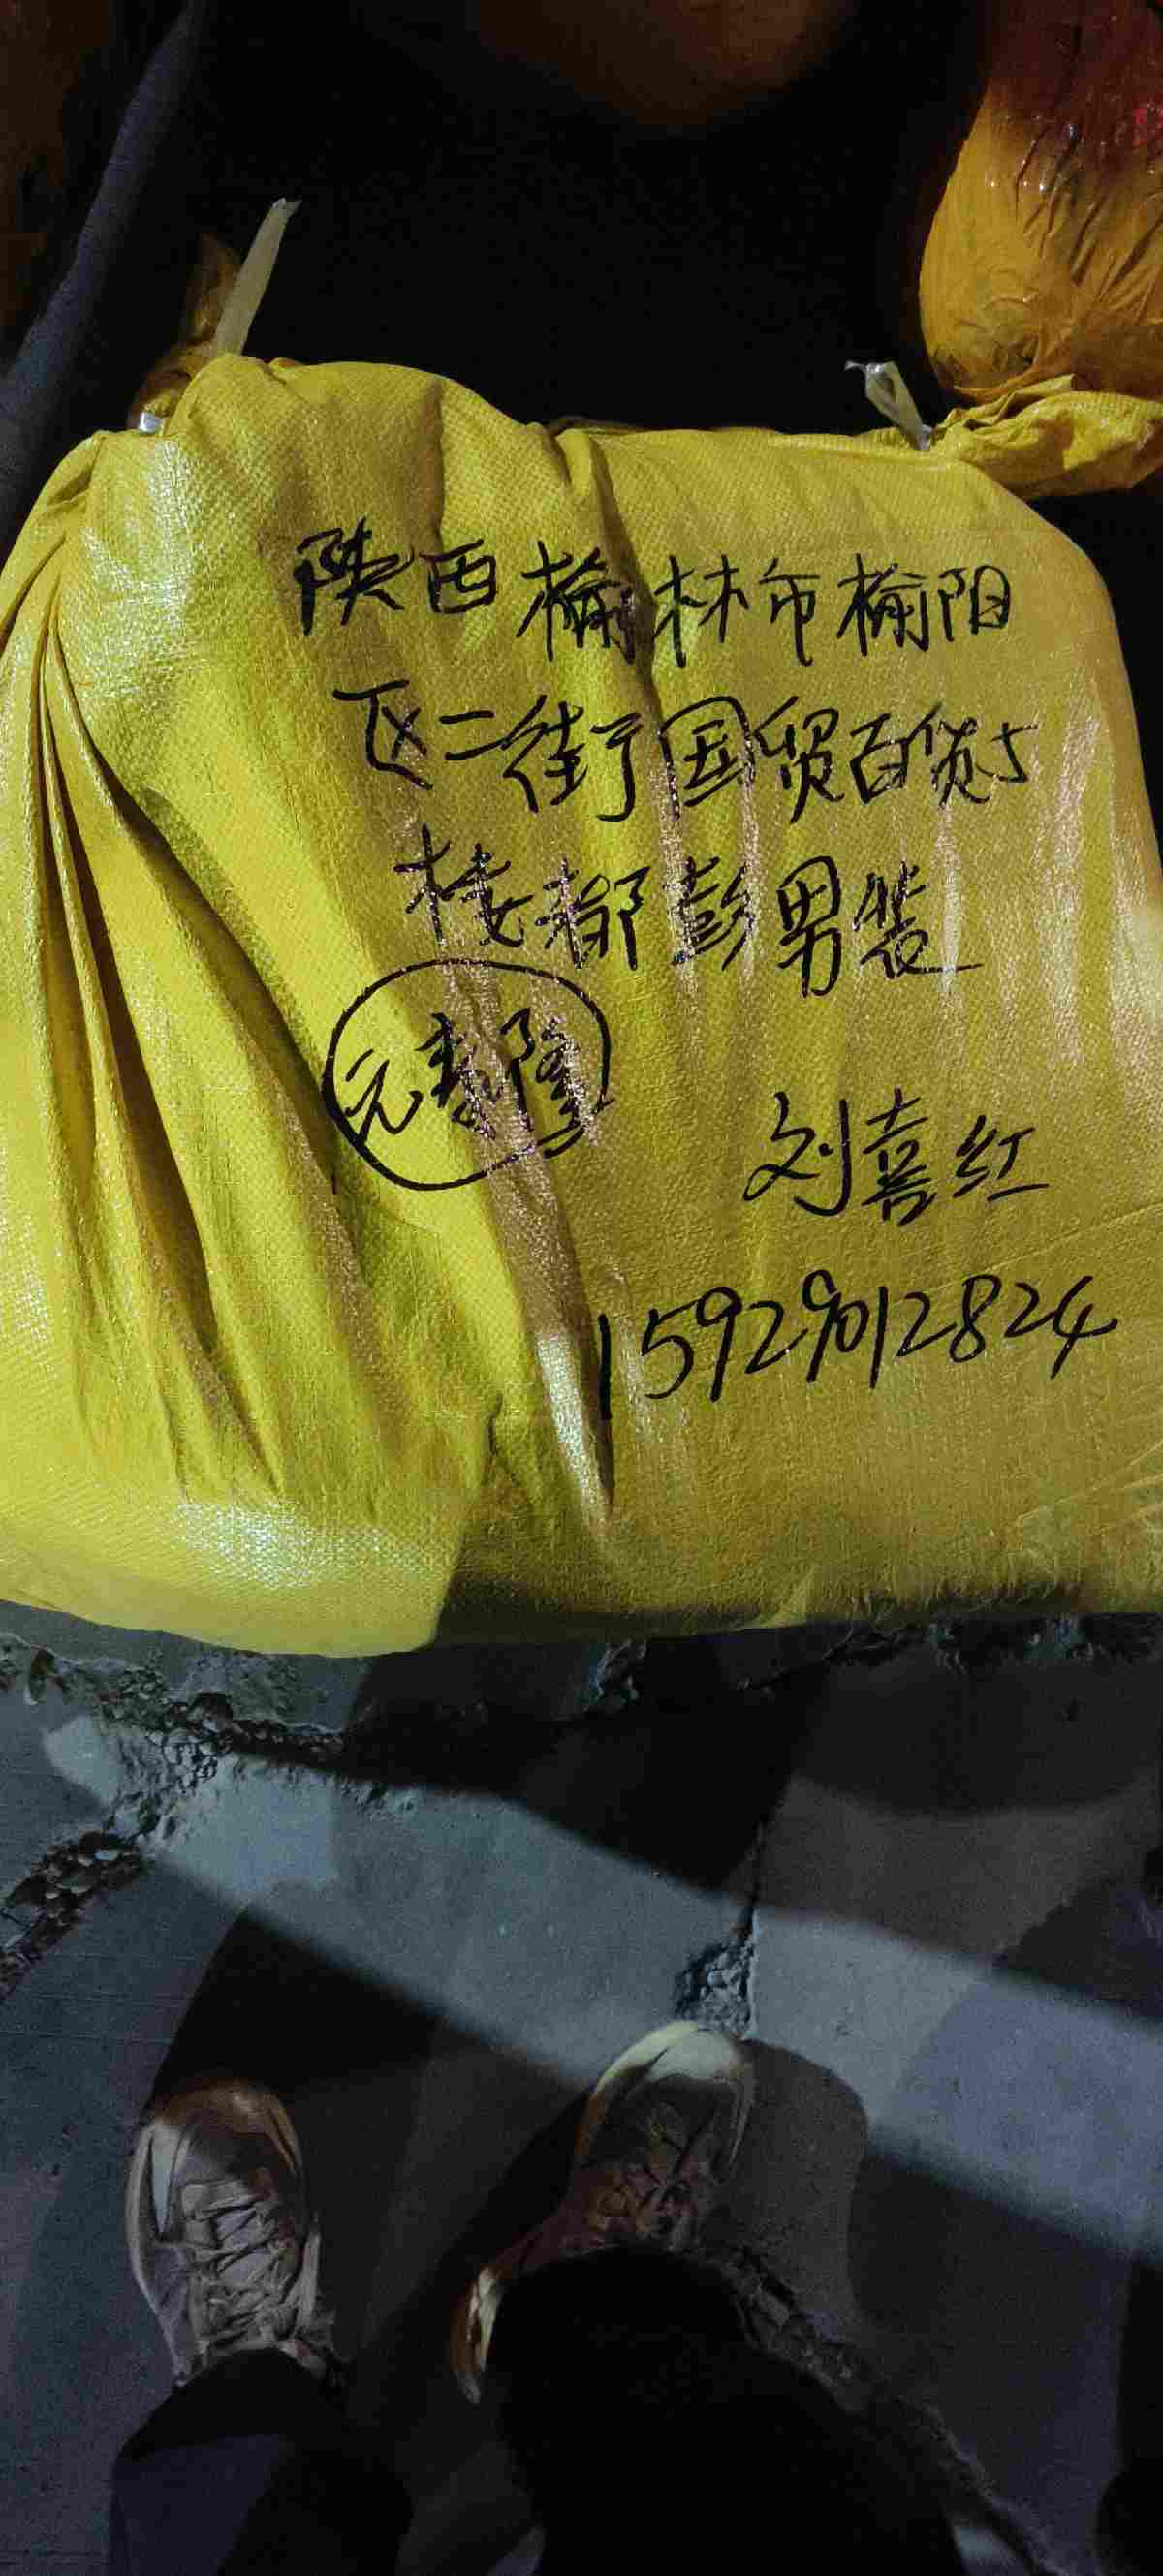 陕西榆林市榆阳
区二街国贸百货5
楼都彭男装
元泰隆
刘喜红
15929012824